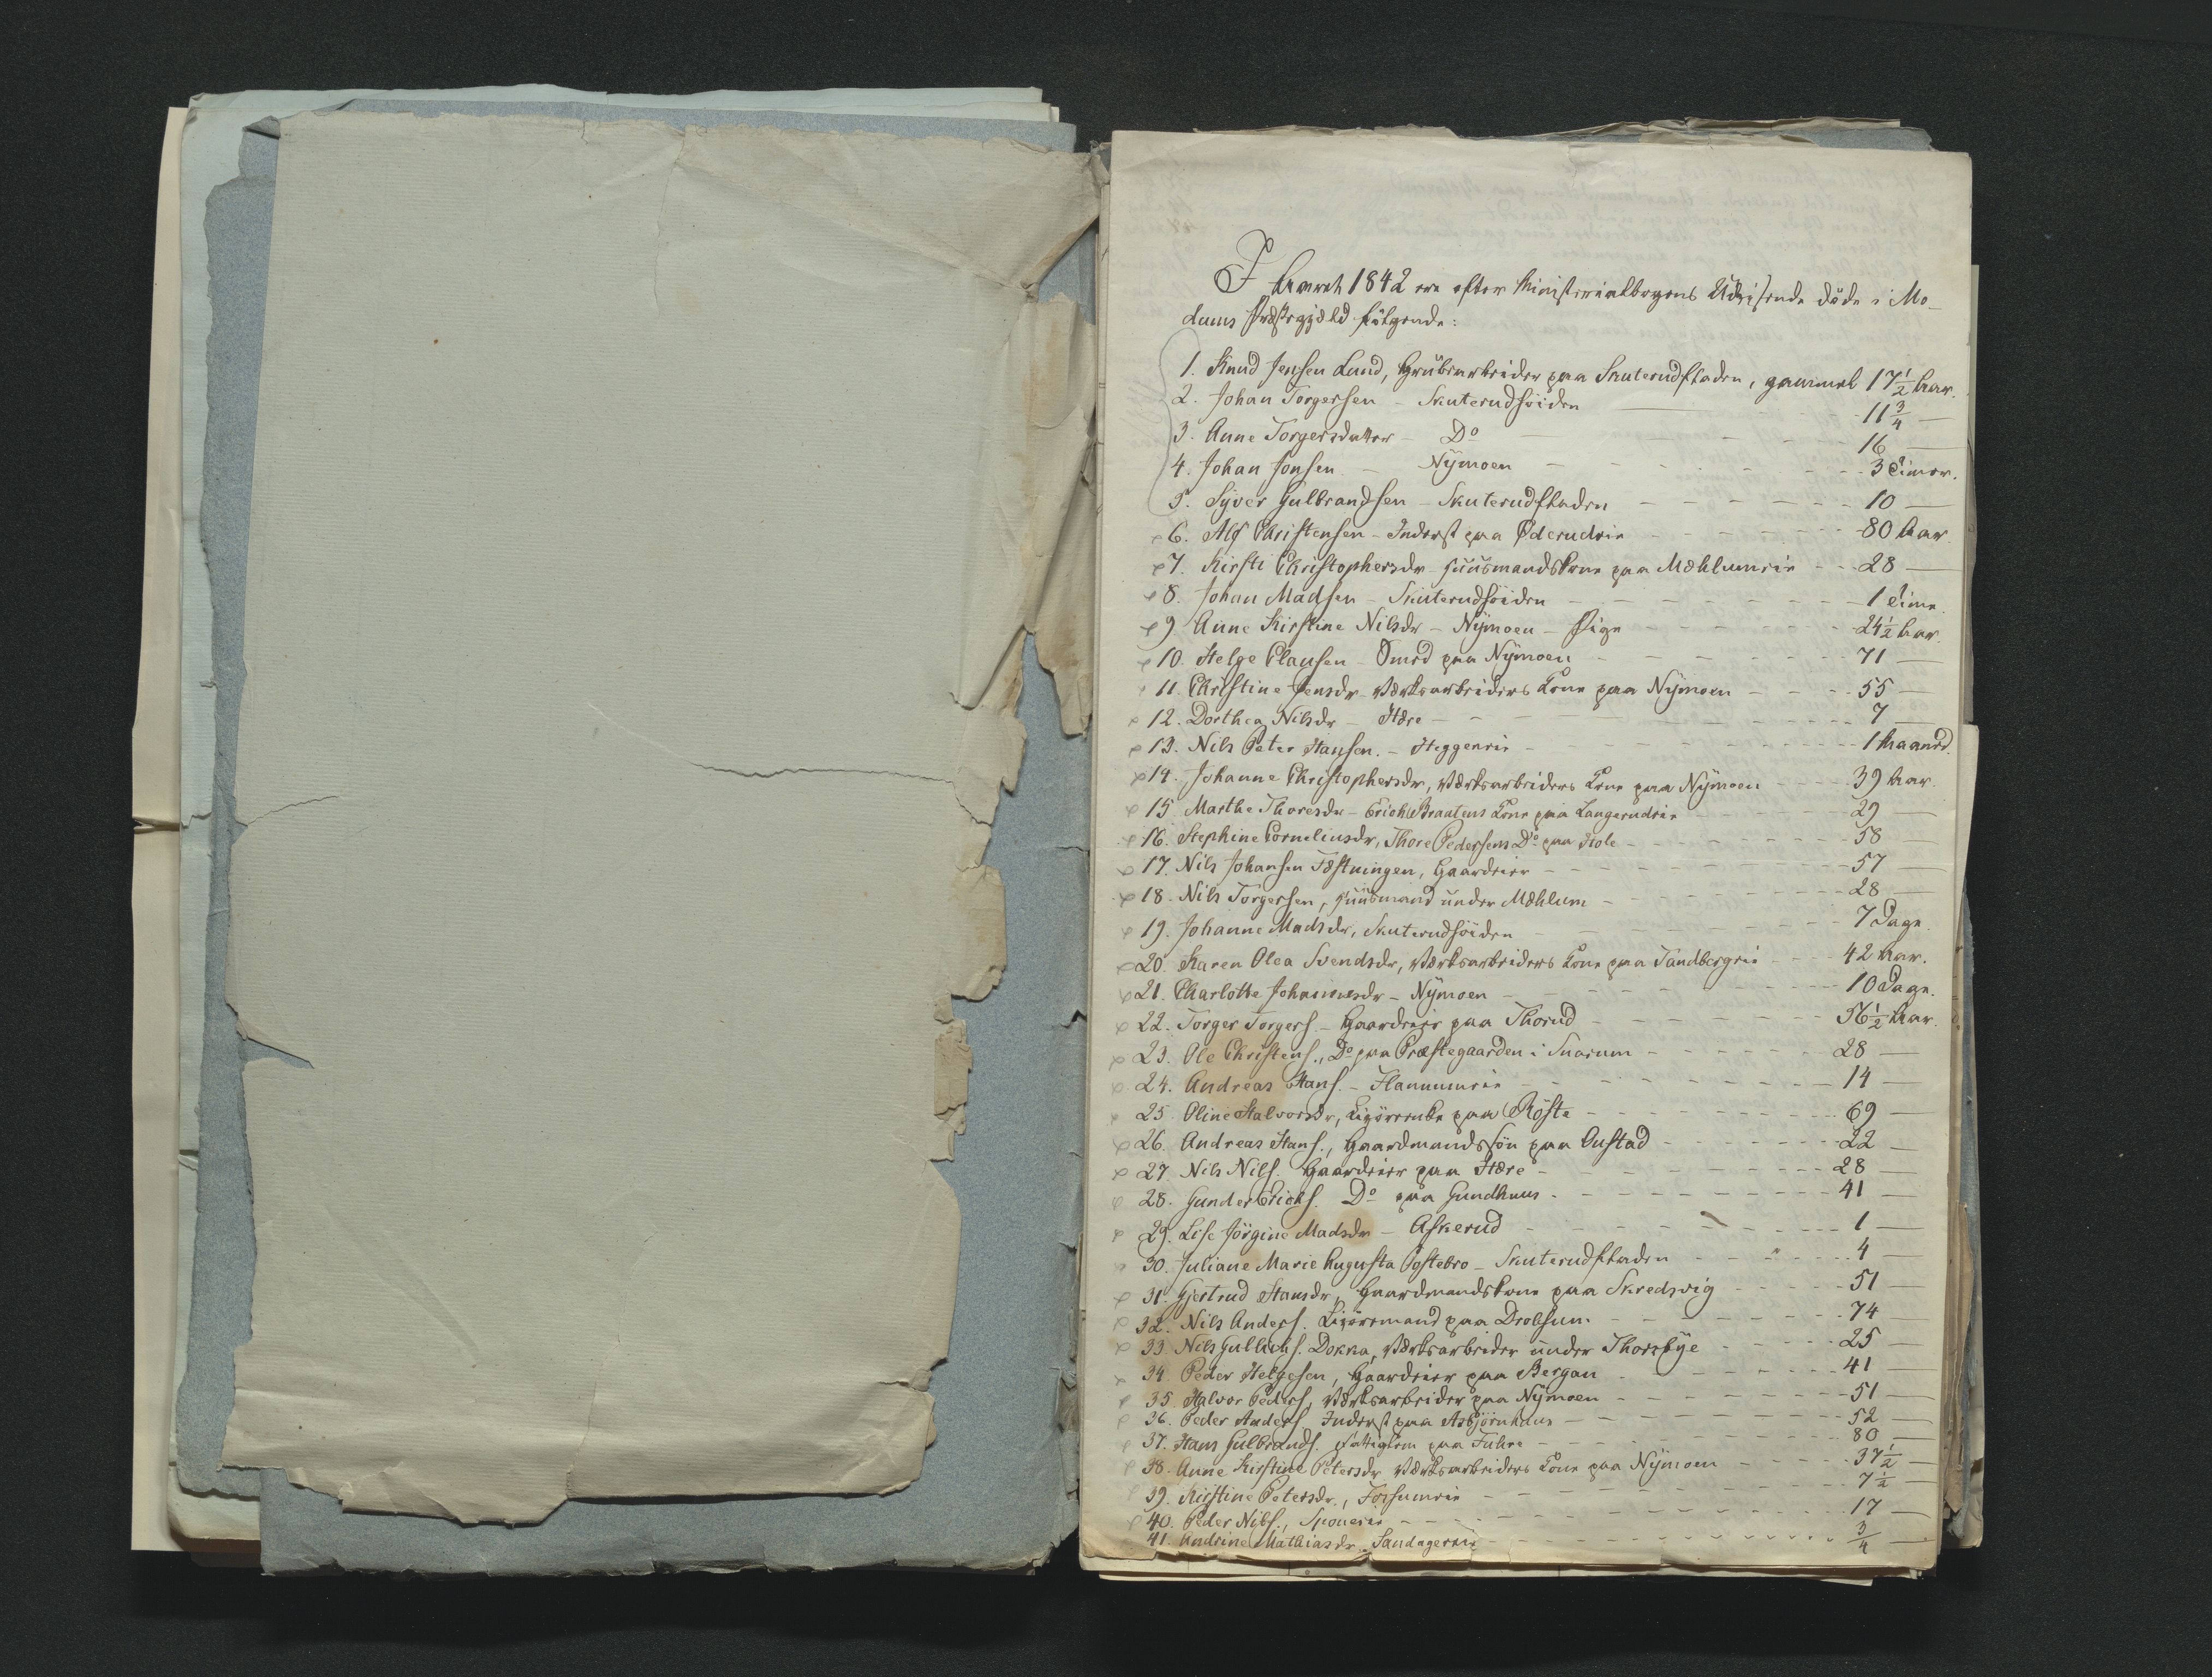 I Aaret 1842 ere efter Ministerialbogens Udvisende døde i Mo-
dums Præstegjæld følgende:
1. Knud Jensen Lund, Grubearbeider paa Skuterudfladen, gammel 17½ Aar.
2. Johan Torgersen - Skuterudsöiden - 11¾ —
3. Anne Torgersdatter - Do - 16 —
4. Johan Jonsen - Nÿmoen - 3 Timer.
5. Syver Gulbrandsen - Skuterudfladen - 10 —
6. Alf Christensen - Inderst paa Øderudeie - 80 Aar.
7. Kirsti Christophersdr - Huusmandskone paa Mæhlumeie - 28 —
8. Johan Madsen - Skuterudsöiden - 1 Time.
9. Anne Kirstine Nilsdr - Nÿmoen - Pige - 24½ Aar.
10. Helge Clausen - Smed paa Nÿmoen - 71 —
11. Christine Jensdr - Værksarbeiders Kone paa Nÿmoen - 55 —
12. Dorthea Nilsdr - Hære - 7 —
13. Nils Peter Hansen. - Heggeneie - 1 Maaned.
14. Johanne Christophersdr, Værksarbeiders Kone paa Nÿmoen - 39 Aar.
15. Marthe Thoresdr - Erich Braatens Kone paa Langerudeie - 29 —
16. Stephine Corneliusdr, Thore Pedersens Do paa Hole - 58 —
17. Nils Johansen Fæstningen, Gaardeier - 57 —
18. Nils Torgersen, Huusmand under Mæhlum - 28 —
19. Johanne Madsdr, Skuterudsöiden - 7 Dage.
20. Karen Olea Svendsdr, Værksarbeiders Kone paa Sandbergeie - 42 Aar.
21. Charlotte Johannesdr - Nÿmoen - 10 Dage.
22. Torger Torgers. - Gaardeier paa Thorud - 56½ Aar.
23. Ole Christens., Do paa Præstegaarden i Snarum - 28 —
24. Andreas Hans. - Flannumeie - 14 —
25. Oline Halvorsdr, Ligörenke paa Röste - 69 —
26. Andreas Hans., Gaardmandssön paa Oustad - 22 —
27. Nils Nils. Gaardeier paa Hære - 28 —
28. Gunder Erichs. Do paa Gundhuus - 41 —
29. Lise Jörgine Madsdr - Askerud - 1 —
30. Juliane Marie Augusta Östebro - Skuterudfladen - 4 —
31. Gjertrud Hansdr, Gaardmandskone paa Skredsvig - 51 —
32. Nils Anders. Ligörsmand paa Drolsum - 74 —
33. Nils Gulliks. Dokka, Værksarbeider under Thorsbÿe - 25 —
34. Peder Helgesen, Gaardeier paa Bergan - 41 —
35. Halvor Peders., Værksarbeider paa Nÿmoen - 51 —
36. Peder Anders. Inderst paa Asbjörnhaug - 52 —
37. Hans Gulbrands. Fattiglem paa Fuhre - 80 —
38. Anne Kirstine Petersdr, Værksarbeiders Kone paa Nÿmoen - 37½ —
39. Kirstine Petersdr., Forsumeie - 7½ —
40. Peder Nils., Sponeeie - 17 —
41. Andrine Mathiasdr. Sandageeie - ¾ —